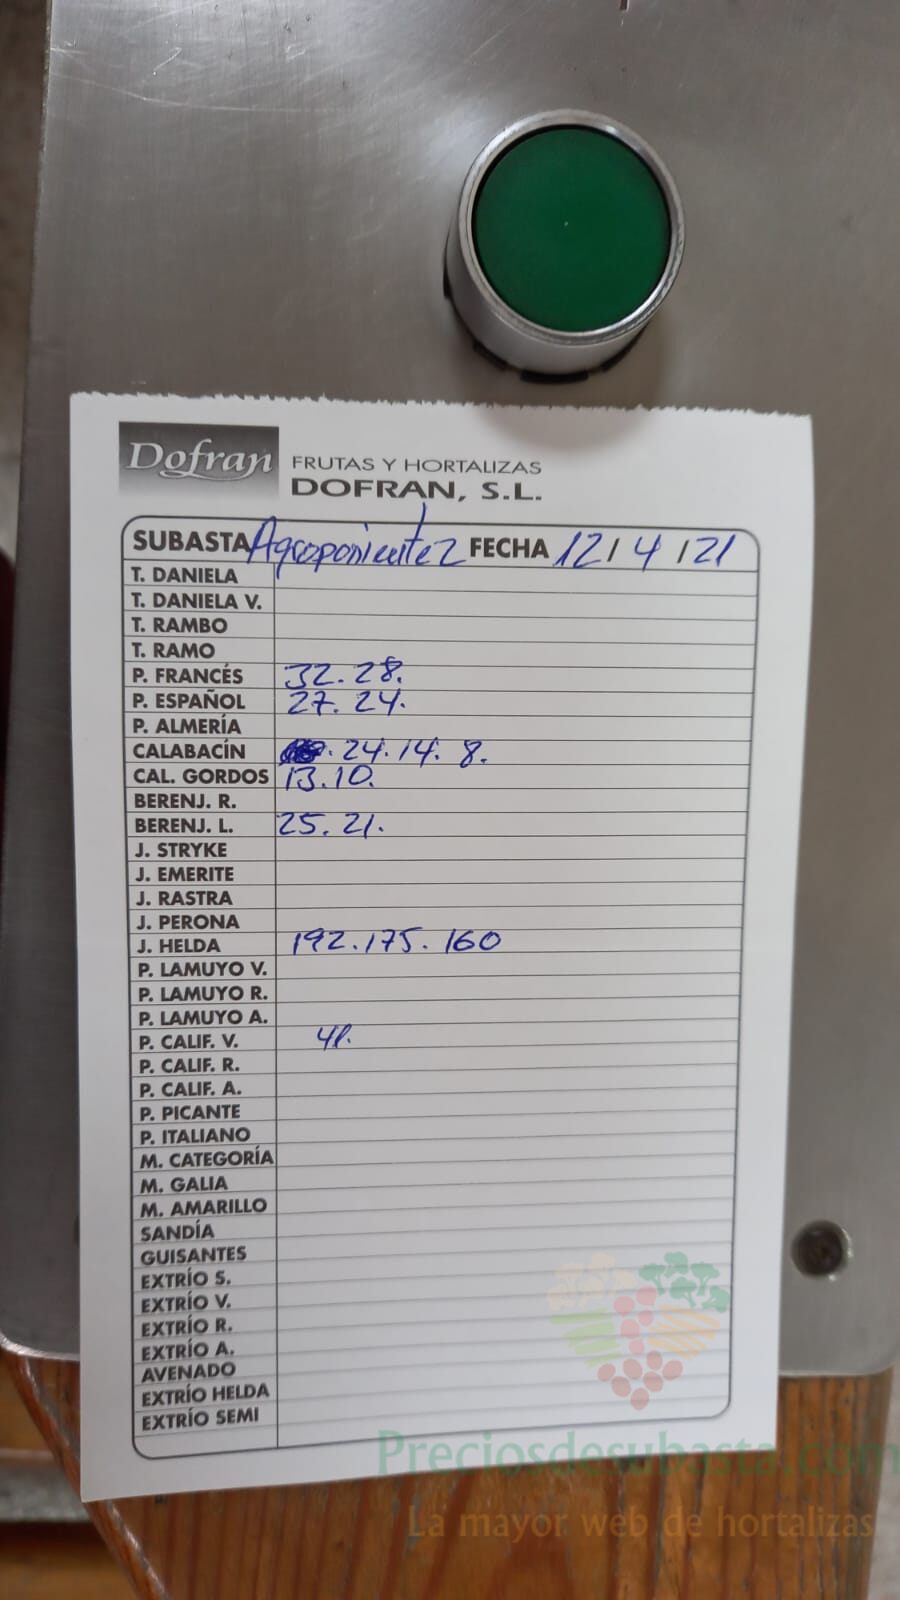 Dofran FRUTAS Y HORTALIZAS
DOFRAN, S.L.
SUBASTA Agroponiente 2 FECHA 12/4/21
T. DANIELA
T. DANIELA V.
T. RAMBO
T. RAMO
P. FRANCÉS 32. 28.
P. ESPAÑOL 27. 24.
P. ALMERÍA
CALABACÍN . 24. 14. 8.
CAL. GORDOS 13. 10.
BERENJ. R.
BERENJ. L. 25. 21.
J. STRYKE
J. EMERITE
J. RASTRA
J. PERONA
J. HELDA 192. 175. 160
P. LAMUYO V.
P. LAMUYO R.
P. LAMUYO A.
P. CALIF. V. 41.
P. CALIF. R.
P. CALIF. A.
P. PICANTE
P. ITALIANO
M. CATEGORÍA
M. GALIA
M. AMARILLO
SANDÍA
GUISANTES
EXTRÍO S.
EXTRÍO V.
EXTRÍO R.
EXTRÍO A.
AVENADO
EXTRÍO HELDA
EXTRÍO SEMI
Preciosdesubasta.com
La mayor web de hortalizas